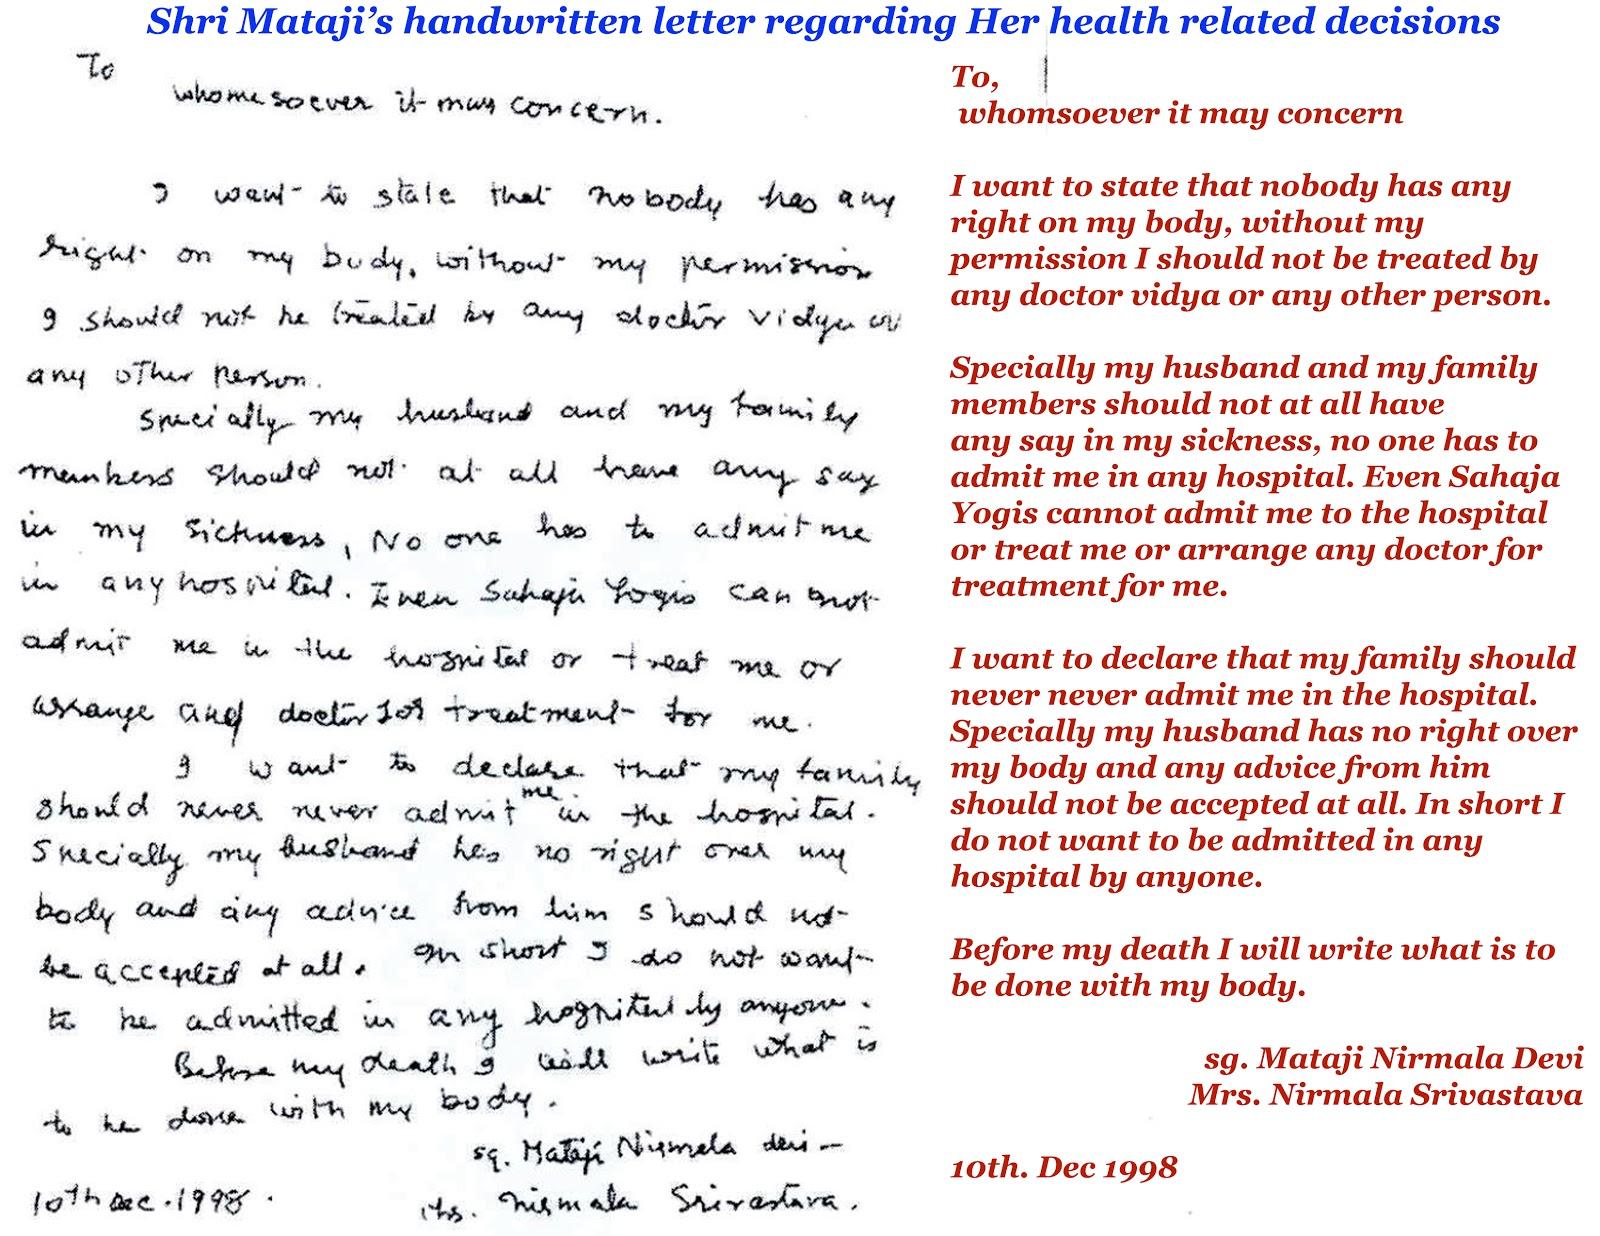 Shri Mataji’s handwritten letter regarding Her health related decisions
To
whomesoever it may concern.
I want to state that nobody has any
right on my body, without my permission
I should not be treated by any doctor vidya or
any other person.
Specially my husband and my family
members should not at all have any say
in my sickness, No one has to admit me
in any hospital. Even Sahaja Yogis can not
admit me in the hospital or treat me or
arrange any doctor for treatment for me.
I want to declare that my family
should never never admit me in the hospital.
Specially my husband has no right over my
body and any advice from him should not
be accepted at all. In short I do not want
to be admitted in any hospital by anyone.
Before my death I will write what is
to be done with my body.
sg. Mataji Nirmala devi
10th Dec. 1998. Mrs. Nirmala Srivastava.
To,
whomsoever it may concern
I want to state that nobody has any
right on my body, without my
permission I should not be treated by
any doctor vidya or any other person.
Specially my husband and my family
members should not at all have
any say in my sickness, no one has to
admit me in any hospital. Even Sahaja
Yogis cannot admit me to the hospital
or treat me or arrange any doctor for
treatment for me.
I want to declare that my family should
never never admit me in the hospital.
Specially my husband has no right over
my body and any advice from him
should not be accepted at all. In short I
do not want to be admitted in any
hospital by anyone.
Before my death I will write what is to
be done with my body.
sg. Mataji Nirmala Devi
Mrs. Nirmala Srivastava
10th. Dec 1998